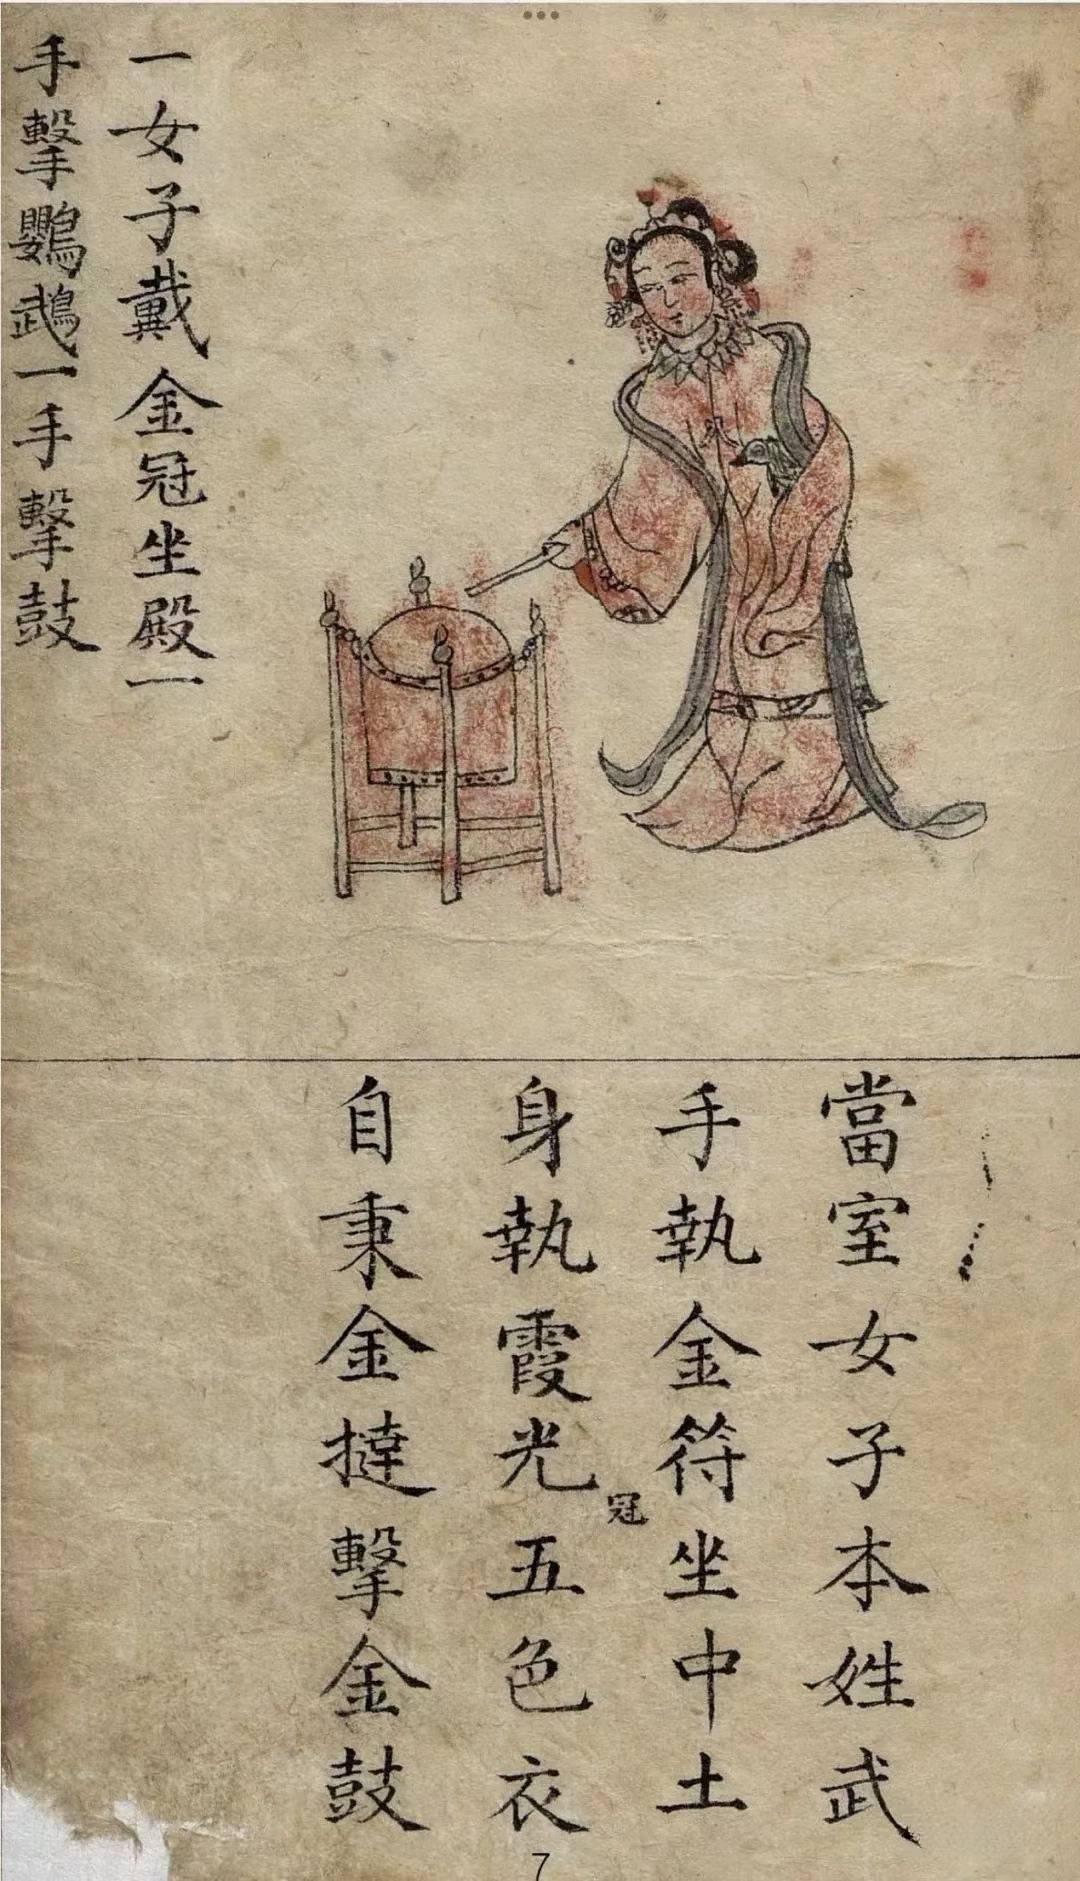 一女子戴金冠坐殿一
手擊鸚鵡一手擊鼓
當室女子本姓武
手執金符坐中土
冠
身執霞光五色衣
自秉金撻擊金鼓
7